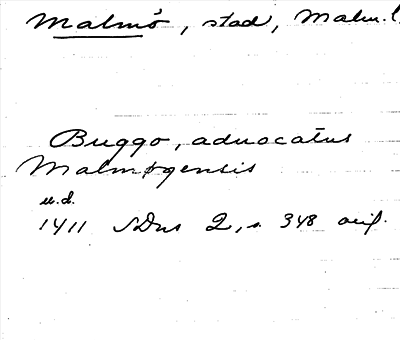 Malmö, stad, Malm. l
Buggo, aduocatus
Malmøgensis
u.d.
1411 SDns 2, s. 348 orig.